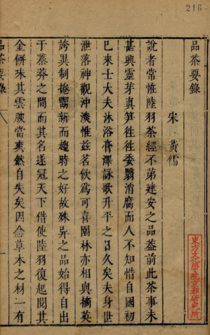 216
品茶要錄
宋 黃儒
說者常怪陸羽茶經不第建安之品蓋前此茶事未
甚興靈芽真笋往往委翳消腐而人不知惜自國初
已來士大夫沐浴膏澤詠歌昇平之日久矣夫身世
洒落神觀沖淡惟兹茗飲為可喜園林亦相與摘英
誇異制捲鬻新而趨時之好故殊異之品始得自出
於蓁莽之間而其名遂冠天下借使陸羽復起閱其
金餅味其雲腴當爽然自失矣因念草木之材一有
品茶要錄